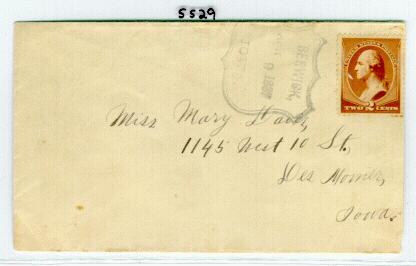 5529
BESWICK,
9 188
IOWA
UNITED STATES POSTAGE
TWO 2 CENTS
Miss Mary
1145 West 10 St,
Des Moines,
Iowa.